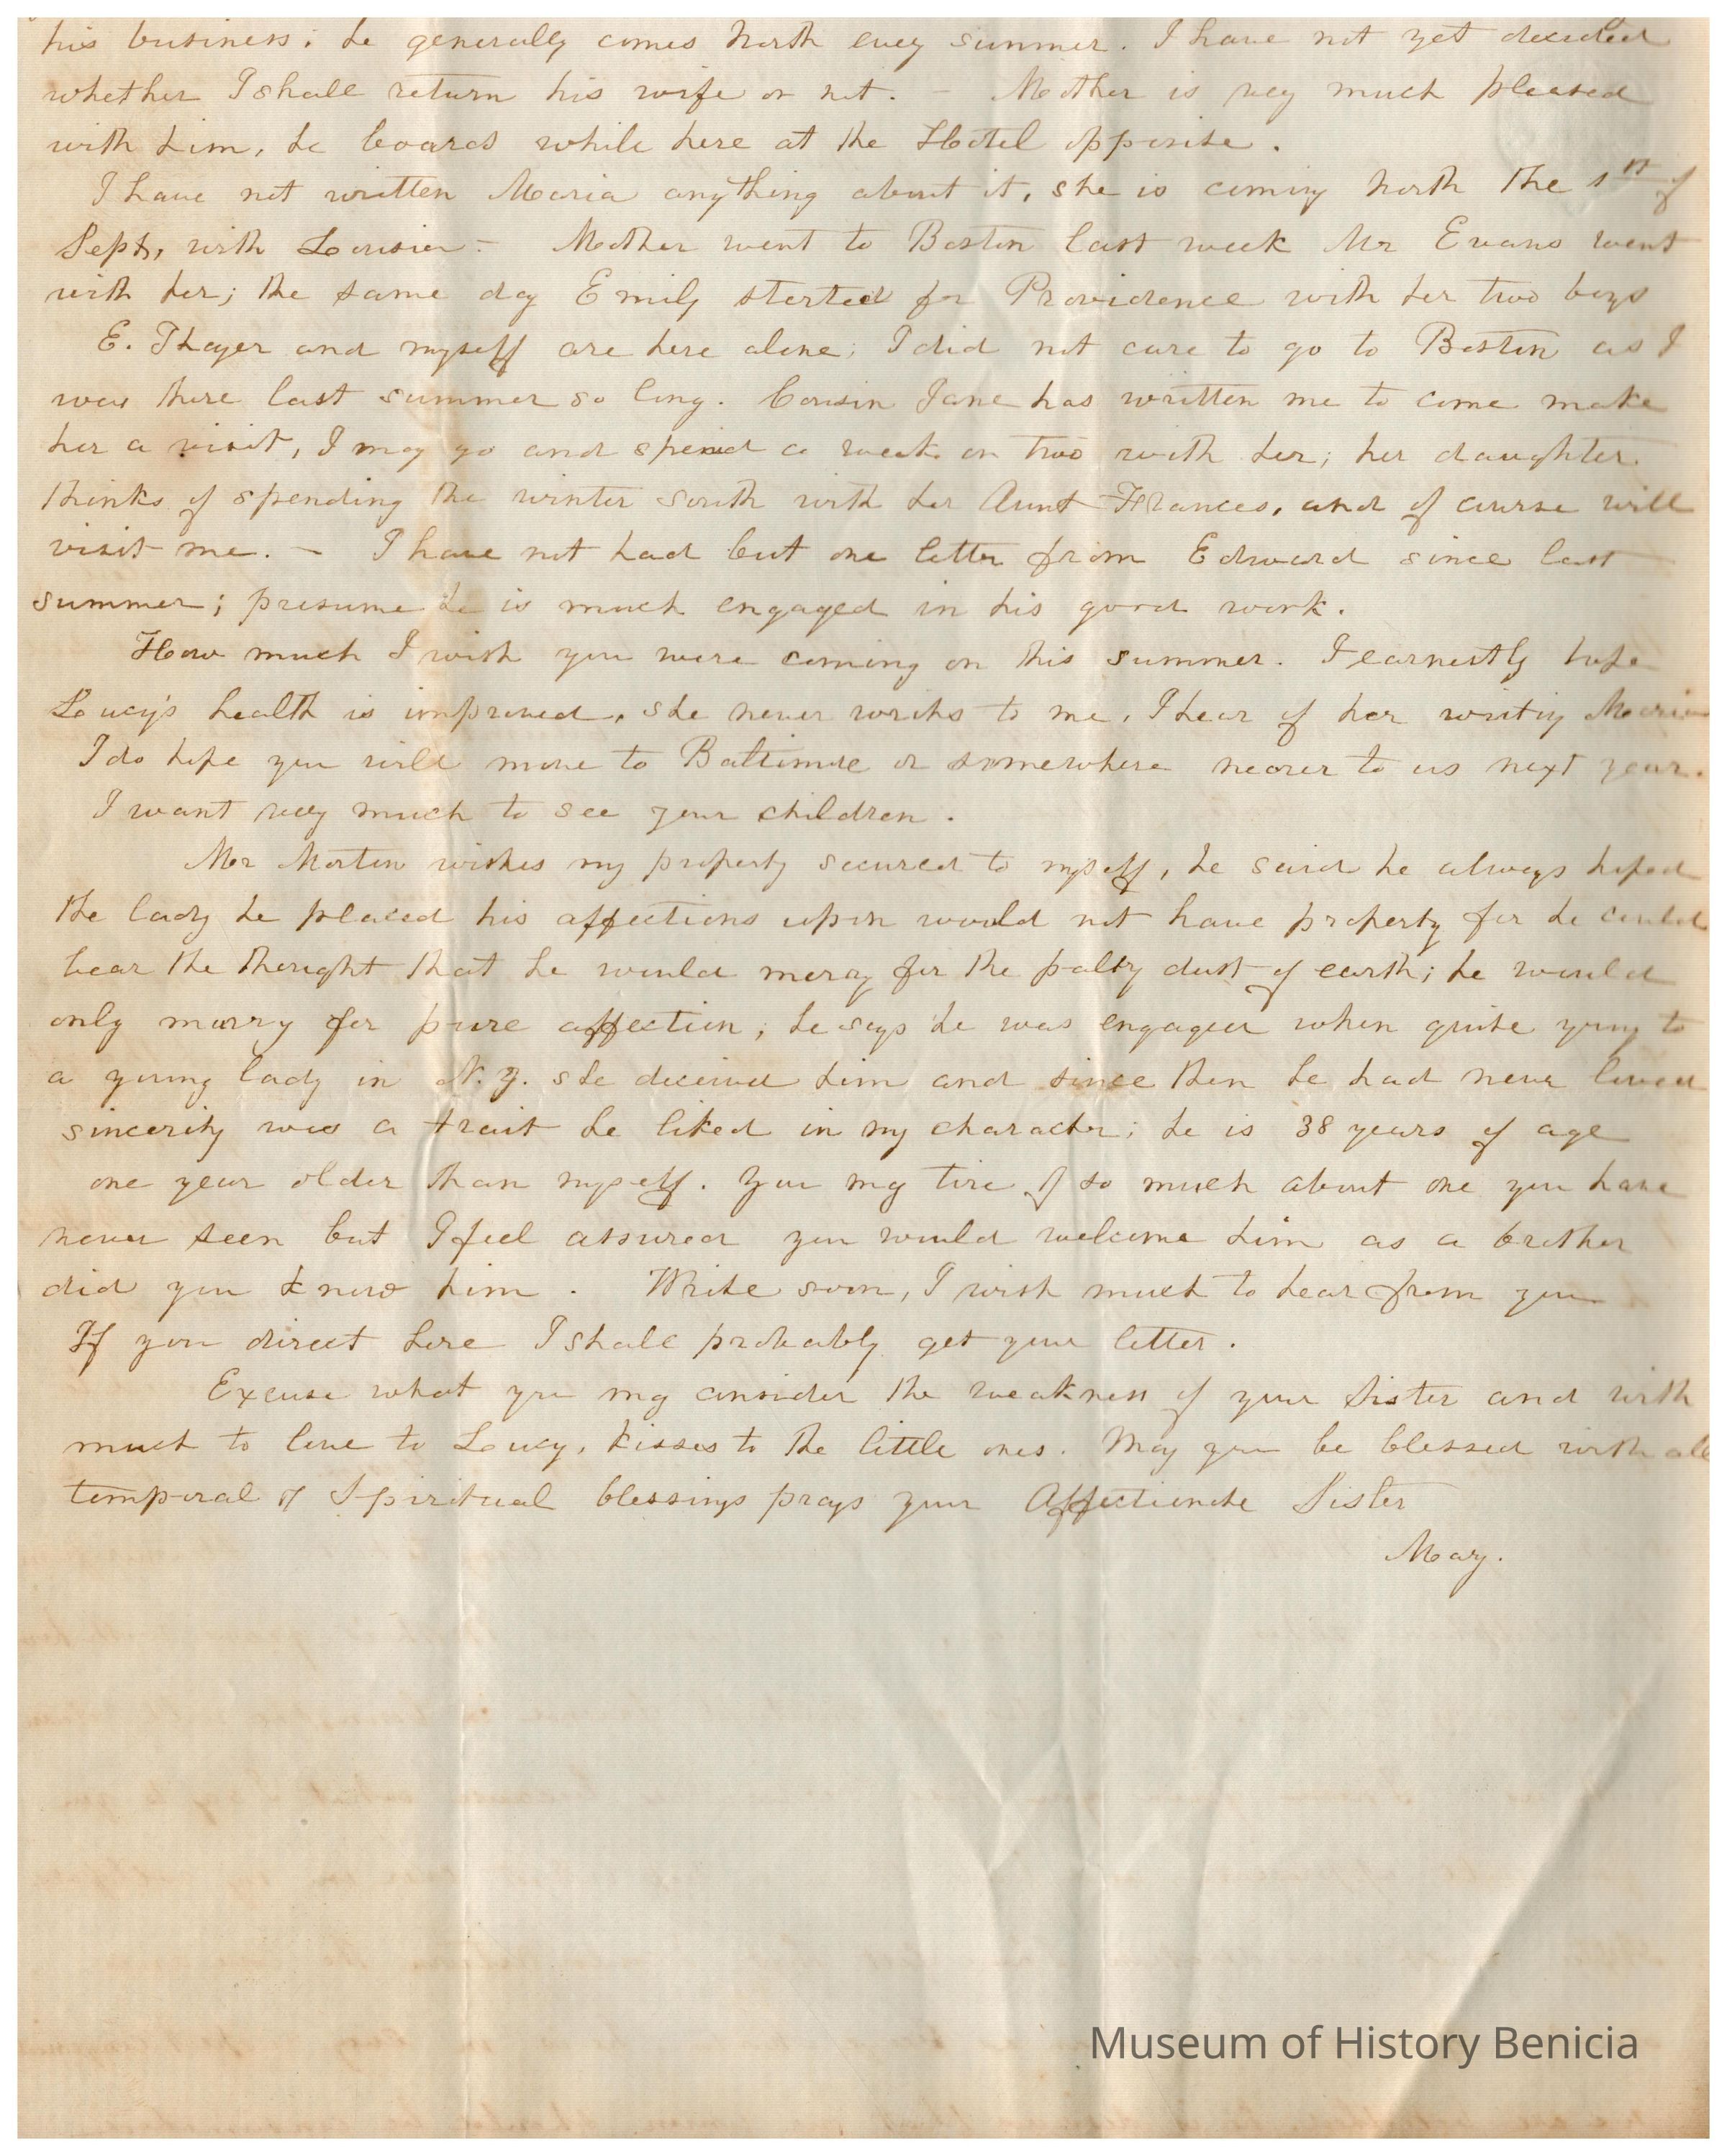 his business; he generally comes North every summer. I have not yet decided
whether I shall return his wife or not. - Mother is very much pleased
with him, he boards while here at the Hotel opposite.
I have not written Maria anything about it, she is coming North the 1st of
Sept, with Louisa - Mother went to Boston last week Mr Evans went
with her; the same day Emily started for Providence with her two boys
E. Thayer and myself are here alone; I did not care to go to Boston as I
was there last summer so long. Cousin Jane has written me to come make
her a visit, I may go and spend a week or two with her; her daughter
thinks of spending the winter South with her Aunt Frances, and of course will
visit me. - I have not had but one letter from Edward since last
summer; presume he is much engaged in his good work.
How much I wish you were coming on this summer. I earnestly hope
Lucy's health is improved, she never writes to me, I hear of her writing Maria
I do hope you will move to Baltimore or somewhere nearer to us next year.
I want very much to see your children.
Mr Morton wishes my property secured to myself, he said he always hoped
the lady he placed his affections upon would not have property for he could
bear the thought that he would marry for the paltry dust of earth; he would
only marry for pure affection; he says he was engaged when quite young to
a young lady in N.Y. she deceived him and since then he had never loved
sincerity was a trait he liked in my character; he is 38 years of age
one year older than myself. You may tire of so much about one you have
never seen but I feel assured you would welcome him as a brother
did you know him. Write soon, I wish much to hear from you
If you direct here I shall probably get your letter.
Excuse what you may consider the weakness of your Sister and with
much to love to Lucy, kisses to the little ones. May you be blessed with all
temporal & Spiritual blessings prays your Affectionate Sister
Mary.
Museum of History Benicia